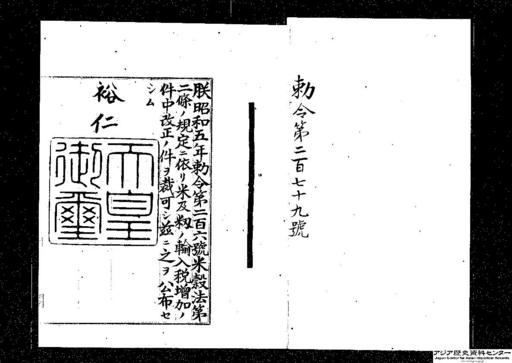 勅令第二百七十九號
朕昭和五年勅令第二百六號米穀法第
二條ノ規定ニ依リ米及籾ノ輸入税増加ノ
件中改正ノ件ヲ裁可シ茲ニ之ヲ公布セ
シム
裕仁
天皇御璽
アジア歴史資料センター
Japan Center for Asian Historical Records